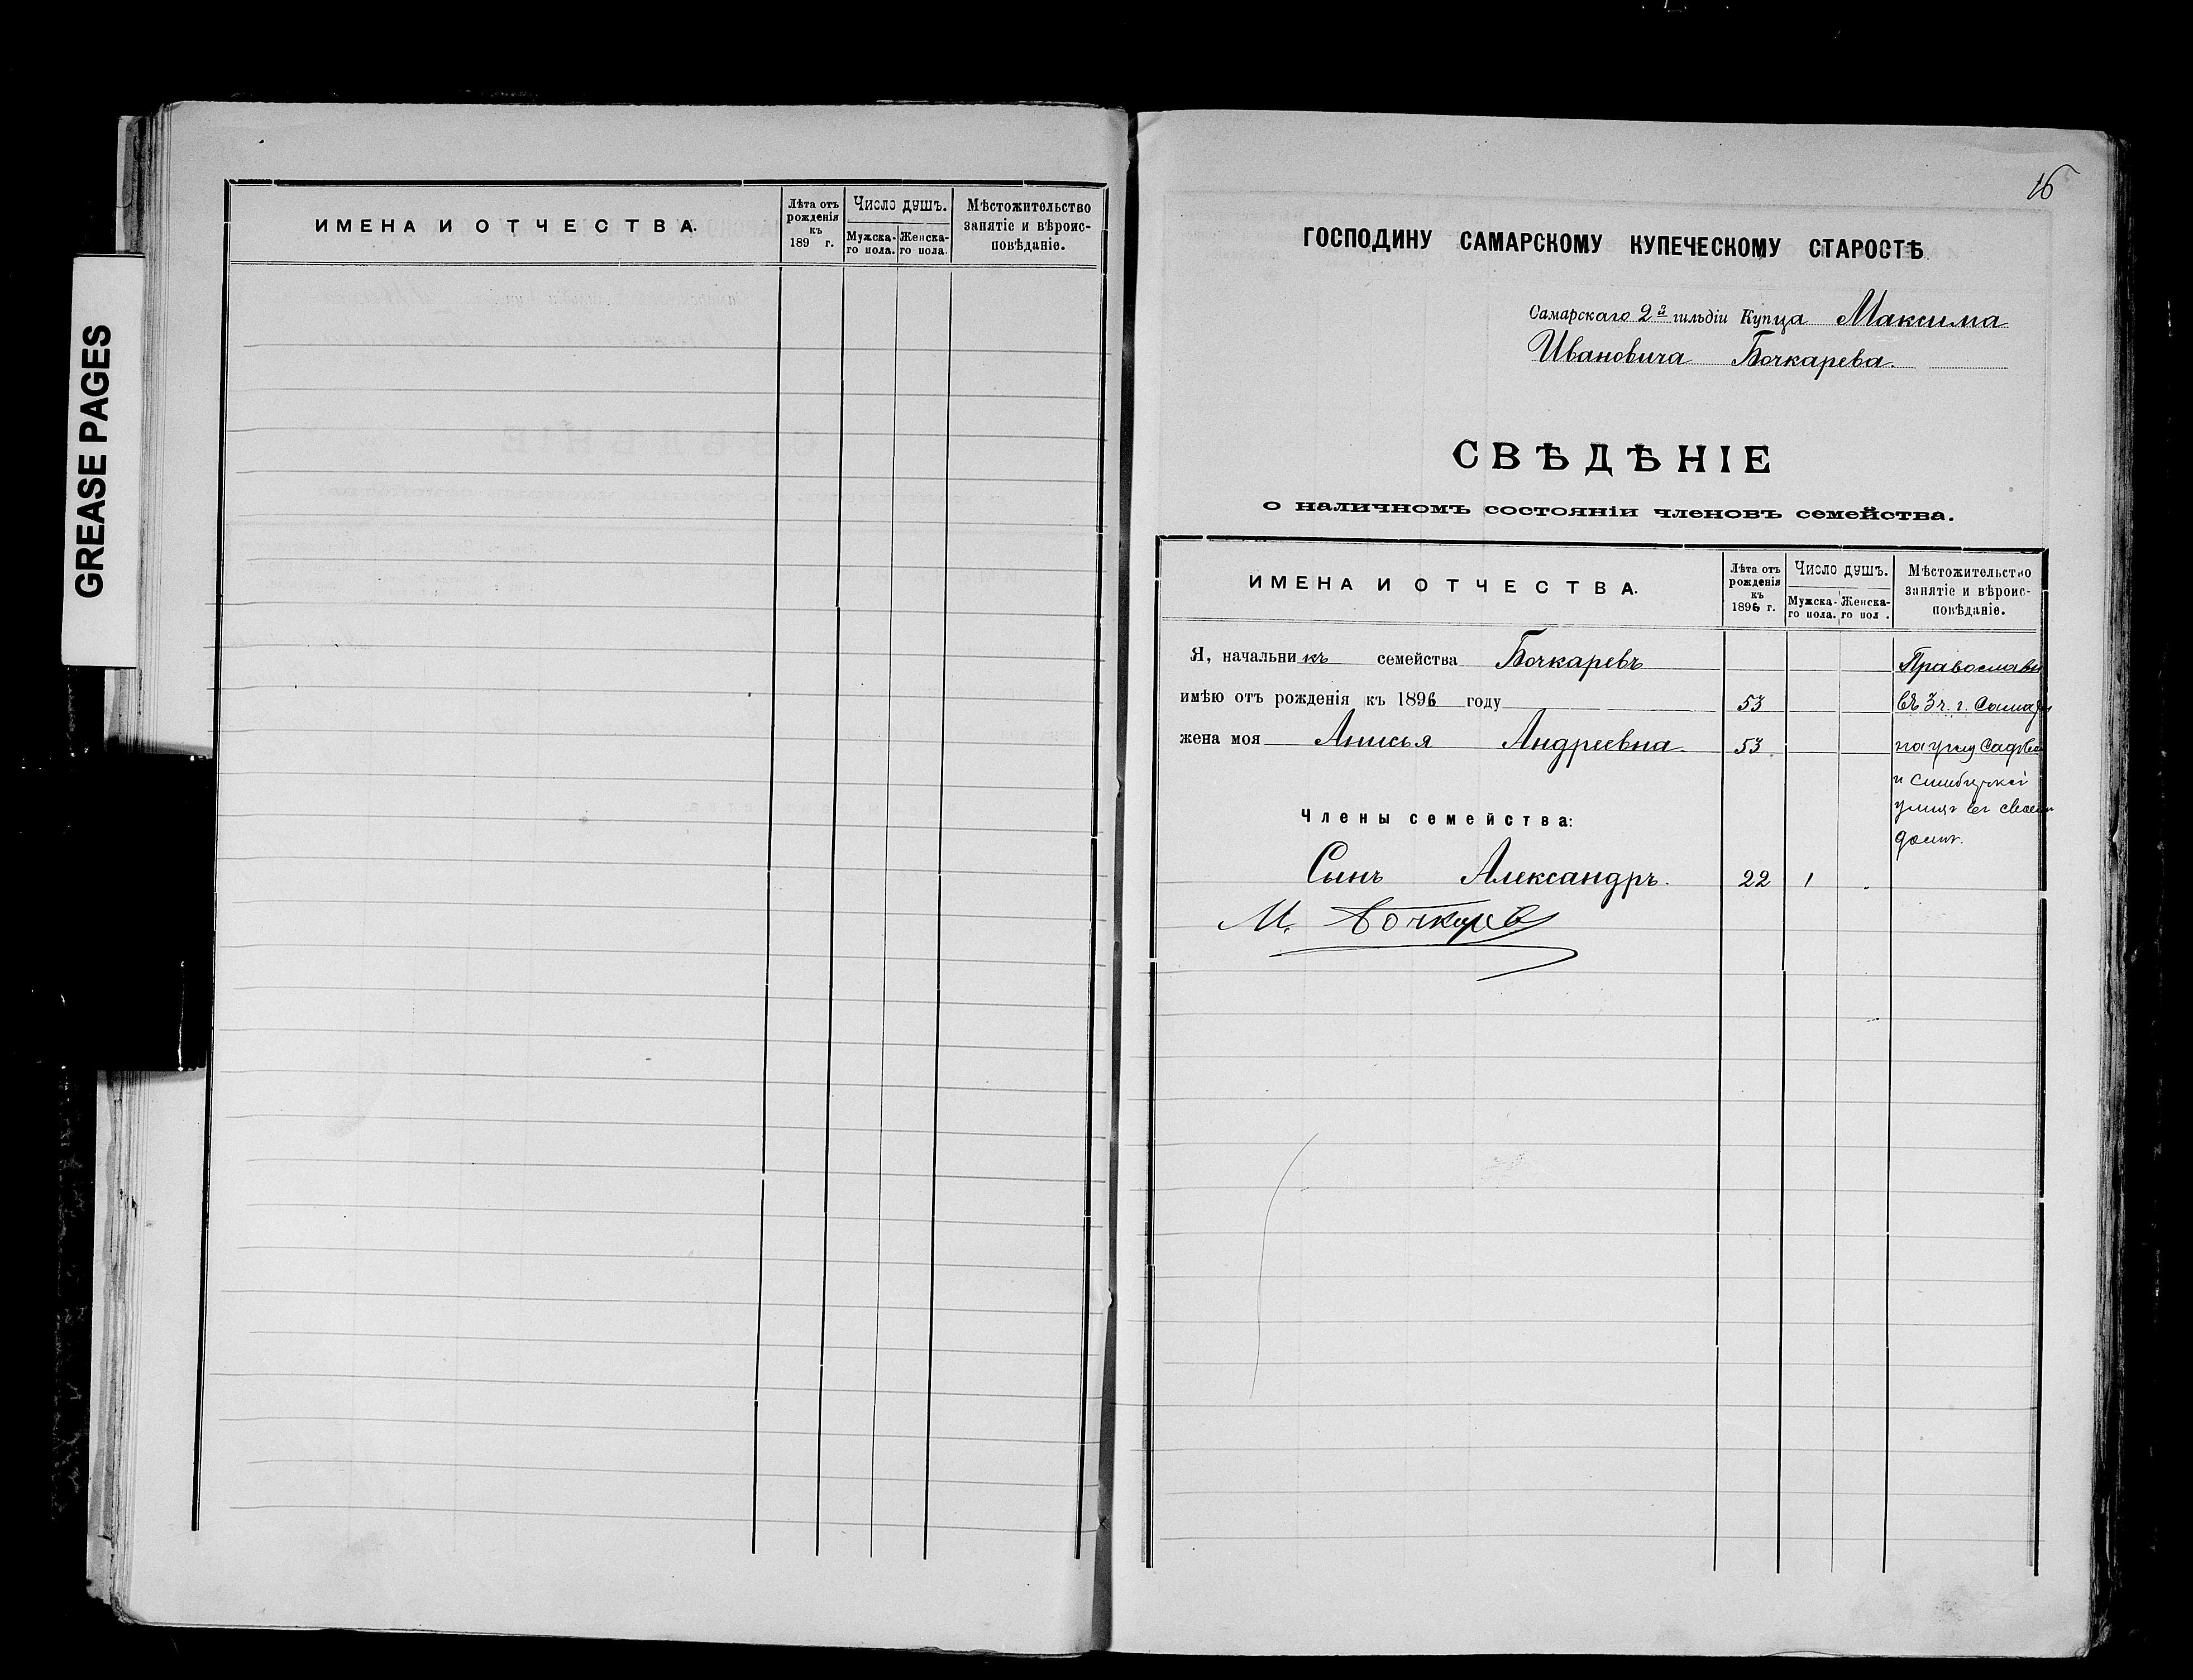 GREASE PAGES
ИМЕНА И ОТЧЕСТВА.
Лѣта отъ рожденія къ 189 г.
Число душъ.
Мужска-го пола.
Женска-го пола.
Мѣстожительство занятіе и вѣроис-повѣданіе.
16
ГОСПОДИНУ САМАРСКОМУ КУПЕЧЕСКОМУ СТАРОСТѢ
Самарскаго 2й гильдіи Купца Максима
Ивановича Бочкарева.
СВѢДѢНІЕ
о наличномъ состояніи членовъ семейства.
ИМЕНА И ОТЧЕСТВА.
Лѣта отъ рожденія къ 1896 г.
Число душъ.
Мужска-го пола.
Женска-го пол .
Мѣстожительство занятіе и вѣроис-повѣданіе.
Я, начальникъ семейства Бочкаревъ Православн
имѣю отъ рожденія къ 1896 году 53 въ 3 ч. г. Самары
жена моя Анисья Андреевна 53 на углу Садов
и Симбирской
улицъ въ своемъ
Члены семейства:
домѣ.
Сынъ Александръ. 22 1
М. Бочкаревъ